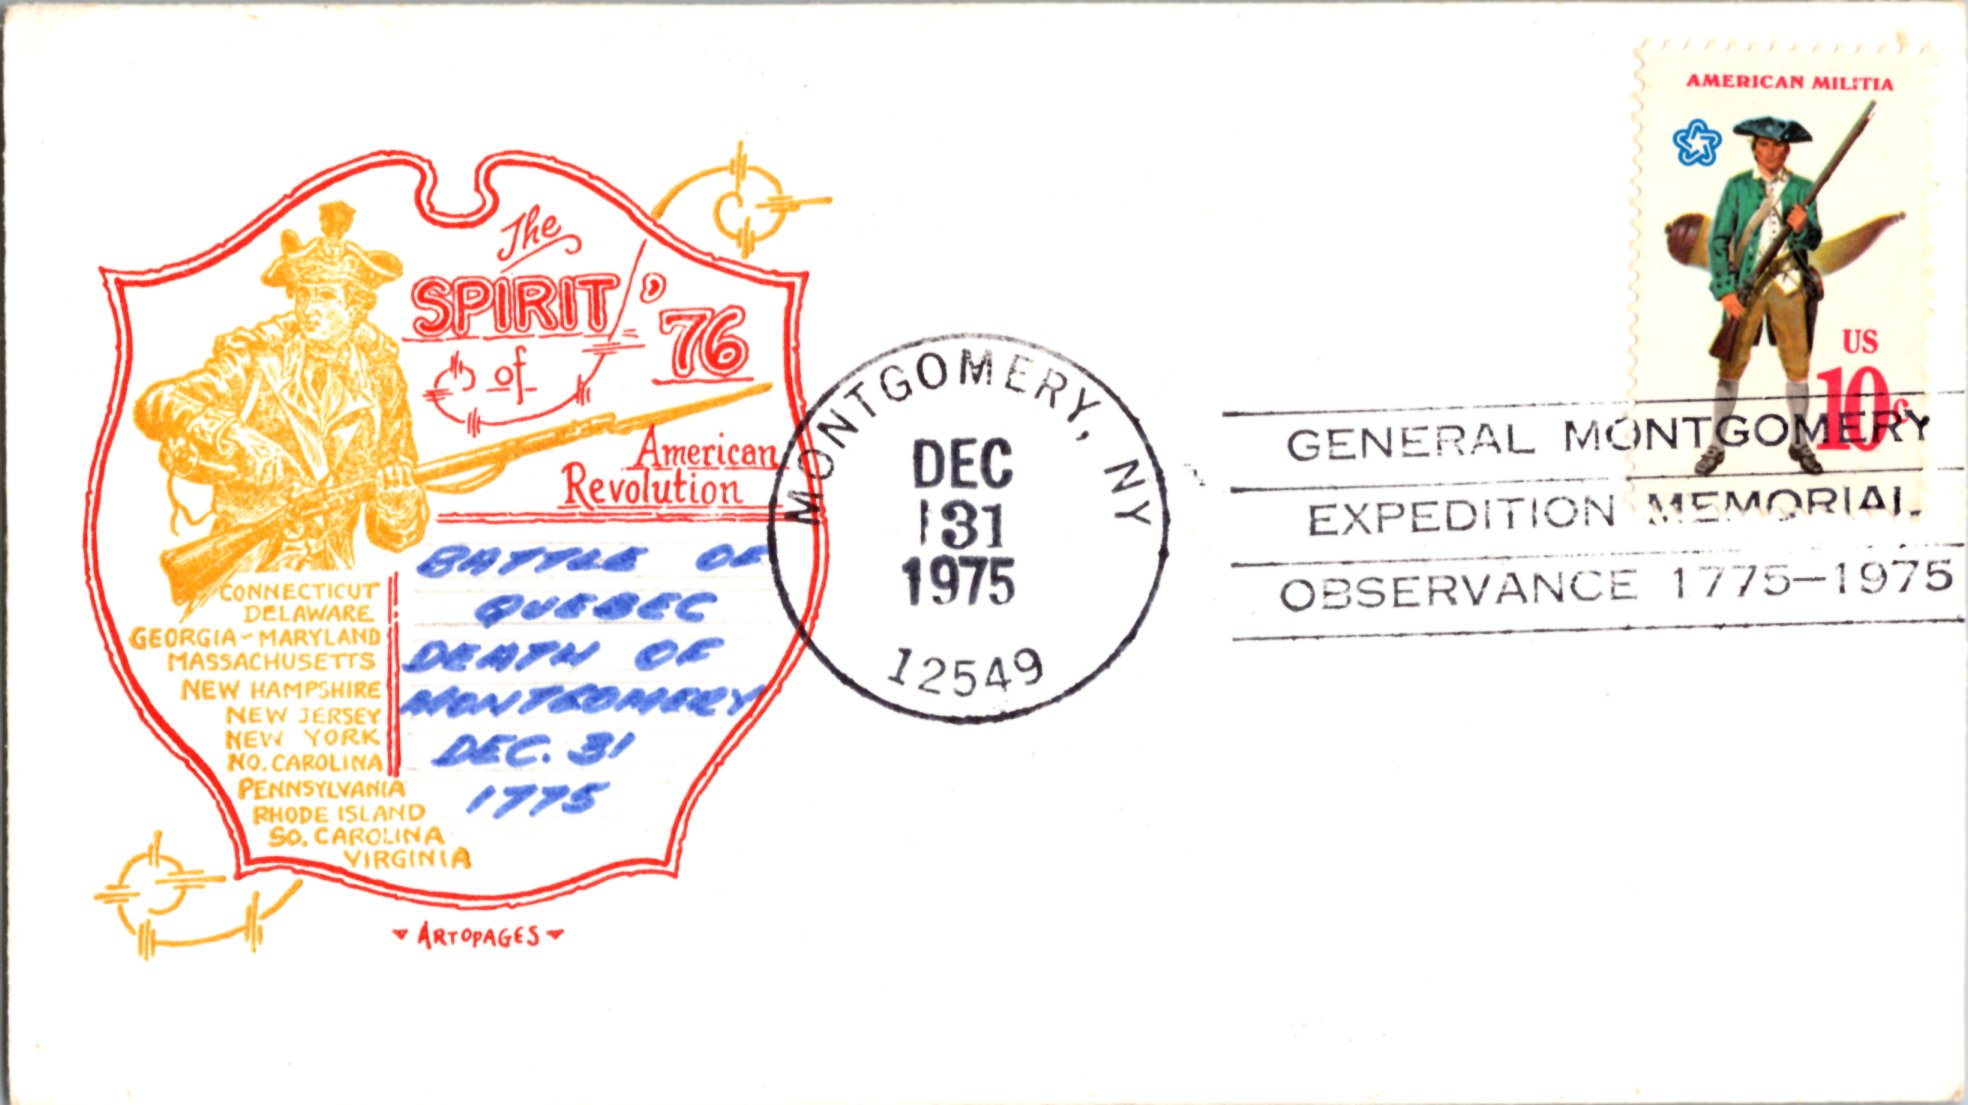 The
SPIRIT
of
'76
American
Revolution
BATTLE OF
QUEBEC
DEATH OF
MONTGOMERY
DEC. 31
1775
CONNECTICUT
DELAWARE
GEORGIA - MARYLAND
MASSACHUSETTS
NEW HAMPSHIRE
NEW JERSEY
NEW YORK
NO. CAROLINA
PENNSYLVANIA
RHODE ISLAND
SO. CAROLINA
VIRGINIA
ARTOPAGES
MONTGOMERY, NY
DEC
31
1975
12549
AMERICAN MILITIA
US
10c
GENERAL MONTGOMERY
EXPEDITION MEMORIAL
OBSERVANCE 1775-1975